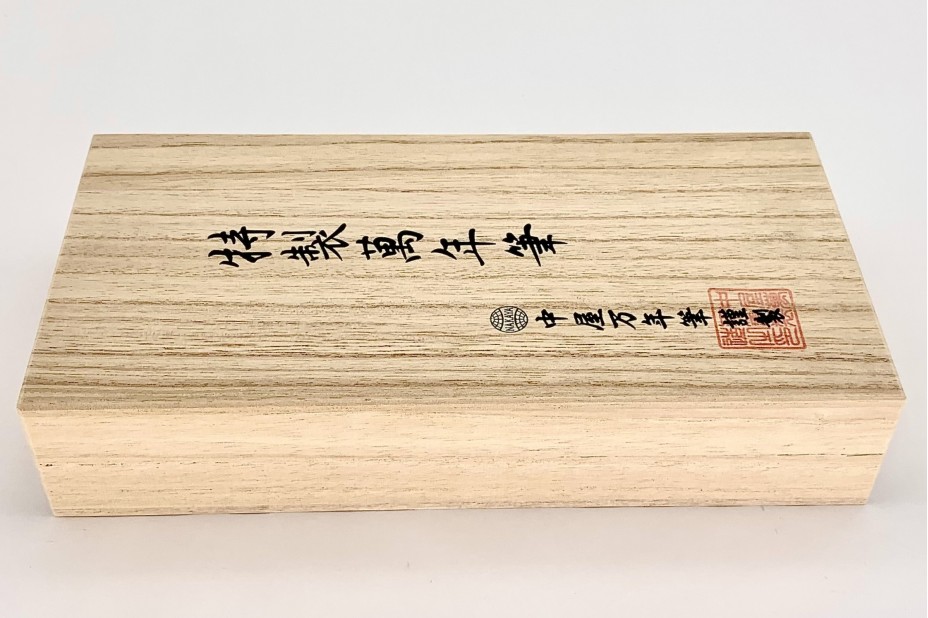 特製萬年筆
NAKAYA 中屋万年筆謹製